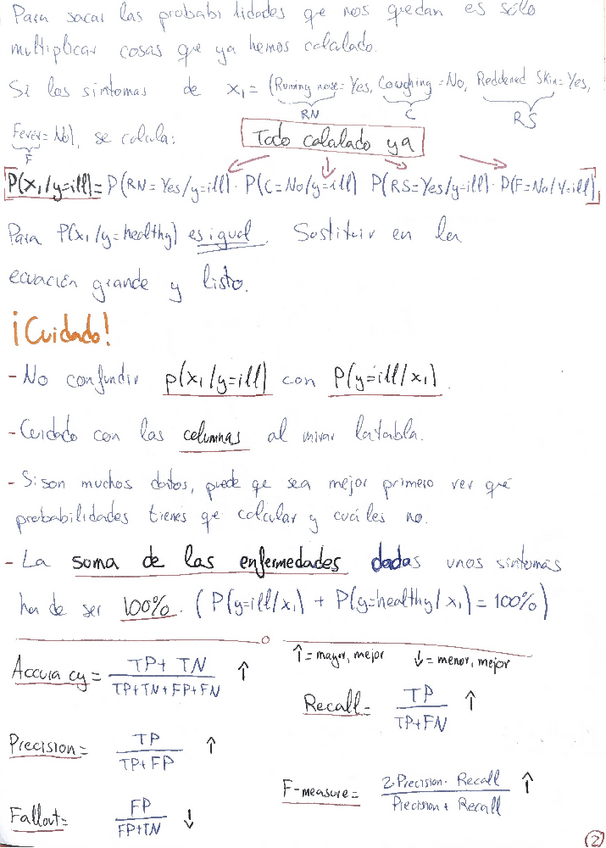 Para sacar las probabilidades que nos quedan es sólo
multiplicar cosas que ya hemos calculado.
Si los síntomas de x₁ = (Running nose = Yes, Coughing = No, Reddened Skin = Yes,
RN C RS
Fever = No), se calcula: Todo calculado ya
F
P(x₁/y=ill) = P(RN=Yes/y=ill) · P(C=No/y=ill) P(RS=Yes/y=ill) · P(F=No/Y=ill)
Para P(x₁/y=healthy) es igual. Sustituir en la
ecuación grande y listo.
¡Cuidado!
- No confundir p(x₁/y=ill) con P(y=ill/x₁).
- Cuidado con las columnas al mirar la tabla.
- Si son muchos datos, puede que sea mejor primero ver qué
probabilidades tienes que calcular y cuáles no.
- La suma de las enfermedades dadas unos síntomas
ha de ser 100%. (P(y=ill/x₁) + P(y=healthy/x₁) = 100%)
↑ = mayor, mejor ↓ = menor, mejor
Accuracy = TP + TN / TP+TN+FP+FN ↑
Recall = TP / TP+FN ↑
Precision = TP / TP+FP ↑
F-measure = 2·Precision · Recall / Precision + Recall ↑
Fallout = FP / FP+TN ↓
2